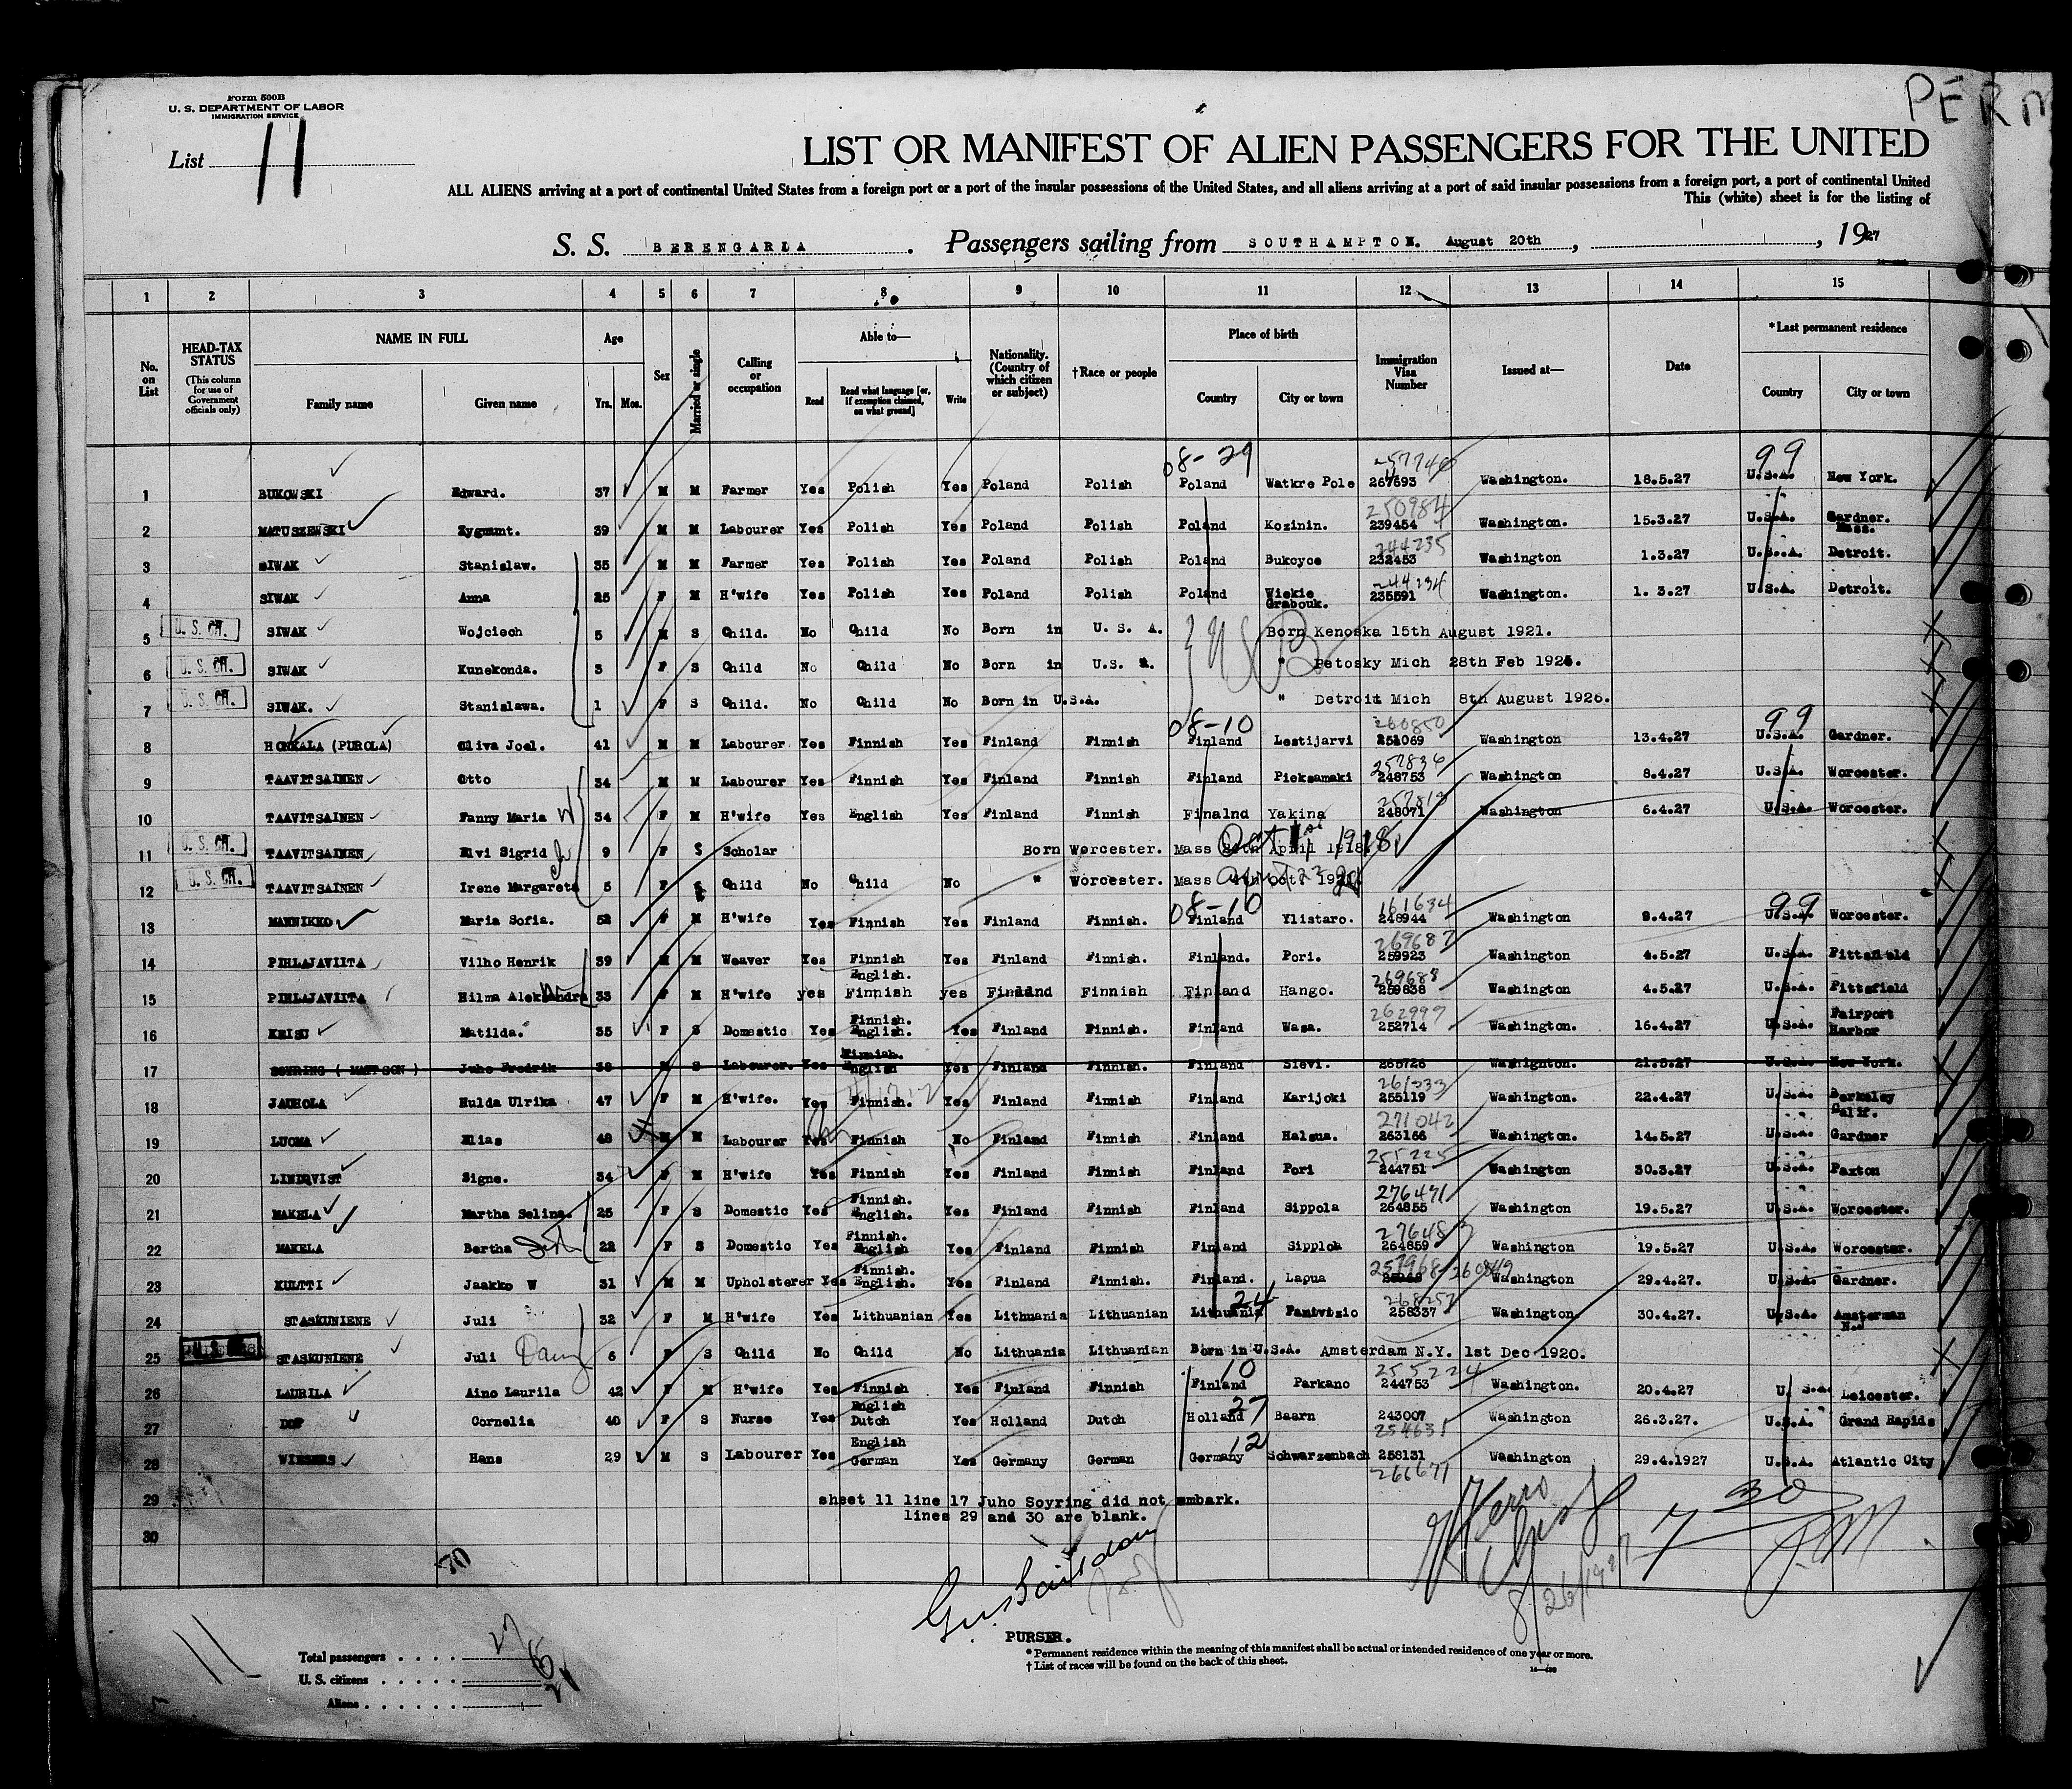 Form 500B
U. S. DEPARTMENT OF LABOR
IMMIGRATION SERVICE
PERM
List 11
LIST OR MANIFEST OF ALIEN PASSENGERS FOR THE UNITED
ALL ALIENS arriving at a port of continental United States from a foreign port or a port of the insular possessions of the United States, and all aliens arriving at a port of said insular possessions from a foreign port, a port of continental United
This (white) sheet is for the listing of
S. S. BERENGARIA. Passengers sailing from SOUTHAMPTON. August 20th, , 1927
1 2 3 4 5 6 7 8 9 10 11 12 13 14 15
No. on List HEAD-TAX STATUS (This column for use of Government officials only) NAME IN FULL Family name Given name Age Yrs. Mos. Sex Married or single Calling or occupation Able to— Read Read what language [or, if exemption claimed, on what ground] Write Nationality. (Country of which citizen or subject) †Race or people Place of birth Country City or town Immigration Visa Number Issued at— Date *Last permanent residence Country City or town
08-29 257740 99
1 BUKOWSKI Edward. 37 M M Farmer Yes Polish Yes Poland Polish Poland Watkre Pole Washington. 18.5.27 U.S.A. New York.
250984
2 MATUSZEWSKI Zygmunt. 39 M M Labourer Yes Polish Yes Poland Polish Poland Kozinin. 239454 Washington. 15.3.27 U.S.A. Gardner. Mass.
244235
3 SIWAK Stanislaw. 35 M M Farmer Yes Polish Yes Poland Polish Poland Bukcyce 232453 Washington 1.3.27 U.S.A. Detroit.
244234
4 SIWAK Anna 25 F M H'wife Yes Polish Yes Poland Polish Poland Wiekie Grabouk. 235591 Washington. 1. 3.27 U.S.A. Detroit.
5 U. S. CH. SIWAK Wojciech 5 M S Child. No Child No Born in U. S. A. Born Kenoska 15th August 1921.
USB
6 U. S. CH. SIWAK Kunekonda. 3 F S Child No Child No Born in U.S. A. " Petosky Mich 28th Feb
7 U. S. CH. SIWAK. Stanislawa. 1 F S Child. No Child No Born in U.S.A. " Detroit Mich 8th August 1926.
08-10 260850 99
8 HONKALA (PUROLA) Oliva Joel. 41 M M Labourer Yes Finnish Yes Finland Finnish Finland Lestijarvi 251069 Washington 13.4.27 U.S.A. Gardner.
257836
9 TAAVITSAINEN Otto 34 M M Labourer Yes Finnish Yes Finland Finnish Finland Pieksamaki 248753 Washington 8.4.27 U.S.A. Worcester.
10 TAAVITSAINEN Fanny Maria W 34 F M H'wife Yes English Yes Finland Finnish Finalnd Yakina 248071 Washington 6.4.27 U.S.A. Worcester.
11 U. S. CH. TAAVITSAINEN Elvi Sigrid 9 F S Scholar Born Worcester. Mass April 1918
12 U. S. CH. TAAVITSAINEN Irene Margareta 5 F S Child No Child No " Worcester. Mass
08-10 161634 99
13 MANNIKKO Maria Sofia. 52 F M H'wife Yes Finnish Yes Finland Finnish. Finland Ylistaro. 248944 Washington 9.4.27 U.S.A. Worcester.
269687
14 PIHLAJAVIITA Vilho Henrik 39 M M Weaver Yes Finnish English. Yes Finland Finnish. Finland. Pori. 259923 Washington 4.5.27 U.S.A. Pittsfield
269688
15 PIHLAJAVIITA Hilma Aleksandra 33 F M H'wife yes Finnish yes Finland Finnish Finland Hango. 259838 Washington 4.5.27 U.S.A. Pittsfield
262999
16 KEISU Matilda. 35 F S Domestic Yes Finnish. English. Yes Finland Finnish. Finland Wasa. 252714 Washington. 16.4.27 U.S.A. Fairport Harbor
17 SOYRING ( MATTSON ) Juho Fredrik 38 M S Labourer. Yes Finnish. English Yes Finland Finnish. Finland Sievi. 265726 Washignton 21.5.27 U.S.A. New York.
261333
18 JAUHOLA Hulda Ulrika 47 F M H'wife. Yes Finnish. Yes Finland Finnish Finland Karijoki 255119 Washington. 22.4.27 U.S.A. Berkeley Calif.
271042
19 LUOMA Elias 48 M M Labourer Yes Finnish No Finland Finnish Finland Halsua. 263166 Washington. 14.5.27 U.S.A. Gardner
255225
20 LINDQVIST Signe. 34 F M H'wife Yes Finnish Yes Finland Finnish Finland Pori 244751 Washington 30.3.27 U.S.A. Paxton
276471
21 MAKELA Martha Selina. 25 F S Domestic Yes Finnish. English. Yes Finland Finnish Finland Sippola 264855 Washington 19.5.27 U.S.A. Worcester.
276483
22 MAKELA Bertha 22 F S Domestic Yes Finnish. English Yes Finland Finnish Finland Sipploa 264859 Washington 19.5.27 U.S.A. Worcester.
260849
23 KULTTI Jaakko W 31 M M Upholsterer Yes Finnish. English. Yes Finland Finnish. Finland. Lapua Washington 29.4.27. U.S.A. Gardner.
24 268257
24 STASKUNIENE Juli 32 F M H'wife Yes Lithuanian Yes Lithuania Lithuanian Lithuania 258337 Washington. 30.4.27. U.S.A. Amsterman
25 STASKUNIENE Juli Daug 6 F S Child No Child No Lithuania Lithuanian Born in U.S.A. Amsterdam N.Y. 1st Dec 1920.
10 255224
26 LAURILA Aino Laurila 42 F M H'wife Yes Finnish Yes Finland Finnish Finland Parkano 244753 Washington. 20.4.27 U. S.A. Leicester.
27
27 DOF Cornelia 40 F S Nurse Yes English Dutch Yes Holland Dutch Holland Baarn 243007 Washington 26.3.27. U.S.A. Grand Rapids
254631
12
28 WIESERS Hans 29 M S Labourer Yes English German Yes Germany German Germany Schwarzenbach 258131 Washington 29.4.1927 U.S.A. Atlantic City
266671
29 sheet 11 line 17 Juho Soyring did not embark.
lines 29 and 30 are blank.
30
70
8/26/1927
7 30 PM
PURSER.
11
Total passengers . . . . 27
U. S. citizens . . . . . 6
Aliens . . . . . . 21
* Permanent residence within the meaning of this manifest shall be actual or intended residence of one year or more.
† List of races will be found on the back of this sheet.